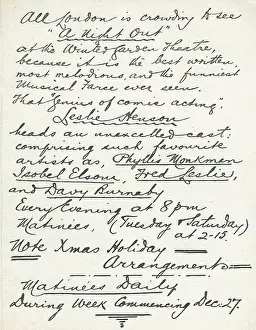 All London is crowding to see
"A Night Out"
at the Winter Garden Theatre,
because it is the best written,
most melodious, and the funniest
Musical Farce ever seen.
That "Genius of comic acting,"
Leslie Henson
heads an unexcelled cast:
comprising such favourite
artists as, Phyllis Monkman
Isobel Elsom, Fred Leslie,
and Davy Burnaby
Every Evening at 8 pm
Matinees, (Tuesday & Saturday)
at 2-15.
Note Xmas Holiday
Arrangements
Matinees Daily
During Week Commencing Dec: 27.
3